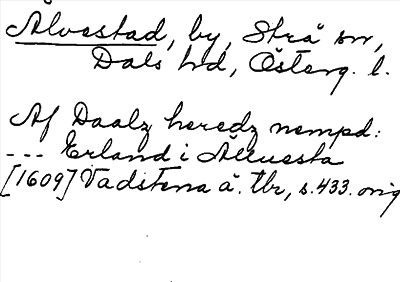 Alvestad, by, Strå sn,
Dals hd, Österg. l.
Af Daalz heredz nempd:
--- Erland i Älluesta
[1609] Vadstena ä. tbr, s. 433. orig